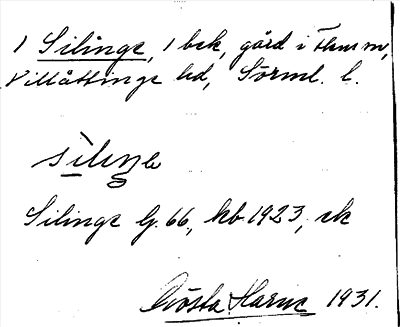 1 Silinge, 1 bsk, gård i Flens sn,
Villåttinge hd, Sörml. l.
silŋe
Silinge G. 66, kb 1923, sk
Gösta Harne 1931.